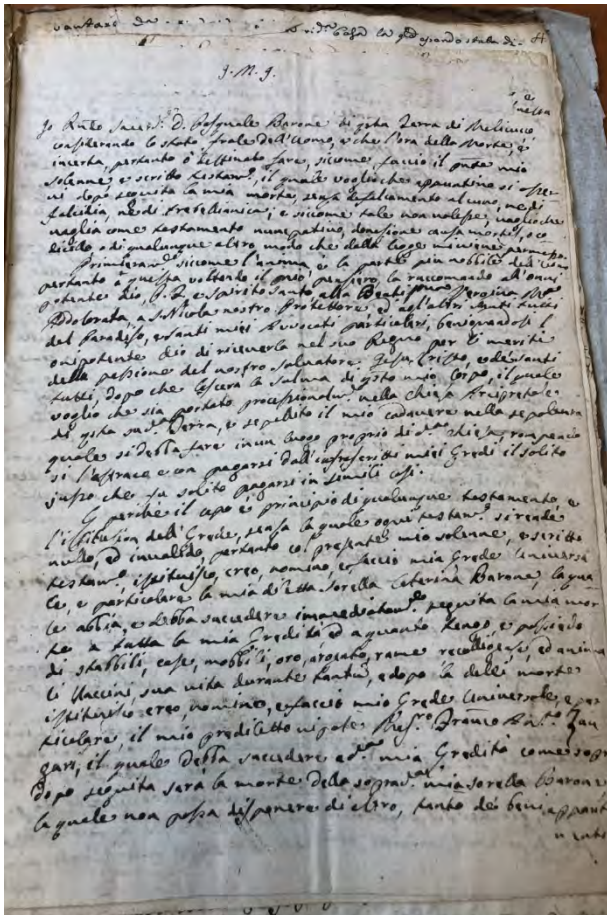 J. M. J.
Io Rndo Sacerd. D. Pasquale Barone di qsta Terra di Melicuccà
considerando lo stato frale dell'Uomo, e che l'ora della Morte, è
incerta, pertanto ò destinato fare, siccome faccio il pnte mio
solenne, e scritto testamo, il quale voglio che appuntino si osser
vi dopo seguita la mia morte, senza alcuno, ne di
falcidia, ne di trebellianica; e siccome tale non valesse, voglio che
vaglia come testamento nuncupativo, donazione causa mortis, o co
dicillo o di qualunque altro modo che dalla legge mi viene permesso.
Primieramte siccome l'anima, è la parte più nobile dell'Uomo
pertanto à questa voltando il mio pensiero, la raccomando all'Onni
potente Dio, P. F. e Spirito Santo, alla Beatissma Vergine Ma
Addolorata, a S. Nicola nostro Protettore ed agl'altri Santi tutti
del Paradiso, e Santi miei Avvocati particolari, benignandosi l'
onipotente Dio di riceverla nel suo Regno per li meriti
della passione del nostro Salvatore Gesù Cristo, e de Santi
tutti, dopo che lascerà la salma di qsto mio corpo, il quale
voglio che sia portato processionalmte nella Chiesa Arcipretale
di qsta sudta Terra, e sepellito il mio cadavere nella sepoltura
quale si debba fare in un luogo proprio di dta Chiesa, rompendo
si l'astraco e con pagarsi dall'infrascritti miei Eredi il solito
jusso che fu solito pagarsi in simili casi.
E perche il capo e principio di qualunque testamento, è
l'istituzion dell'Erede, senza la quale ogni testamo si rende
nullo, ed invalido, pertanto col presente mio solenne, e scritto
testamo, istituisco, creo, nomino, e faccio mia Erede Universa
le, e particolare la mia diletta Sorella Caterina Barone, la qua
le abbia, e debba succedere immediatamte seguita la mia mor
te a tutta la mia Eredità ed a quanto tengo e possiedo
di stabbili, case, mobbili, oro, argento, rame ed anima
li Vaccini, sua vita durante tantum, e dopo la delli morte
istituisco creo, nomino, e faccio mio Erede Universale, e par
ticolare, il mio prediletto nipote Franco Anto Zan
gari, il quale debba succedere a dta mia Eredità come sopr
dopo seguita sarà la morte della sopradta mia sorella Barone
la quale non possa disponere di altro, tanto dei beni appart
nenti